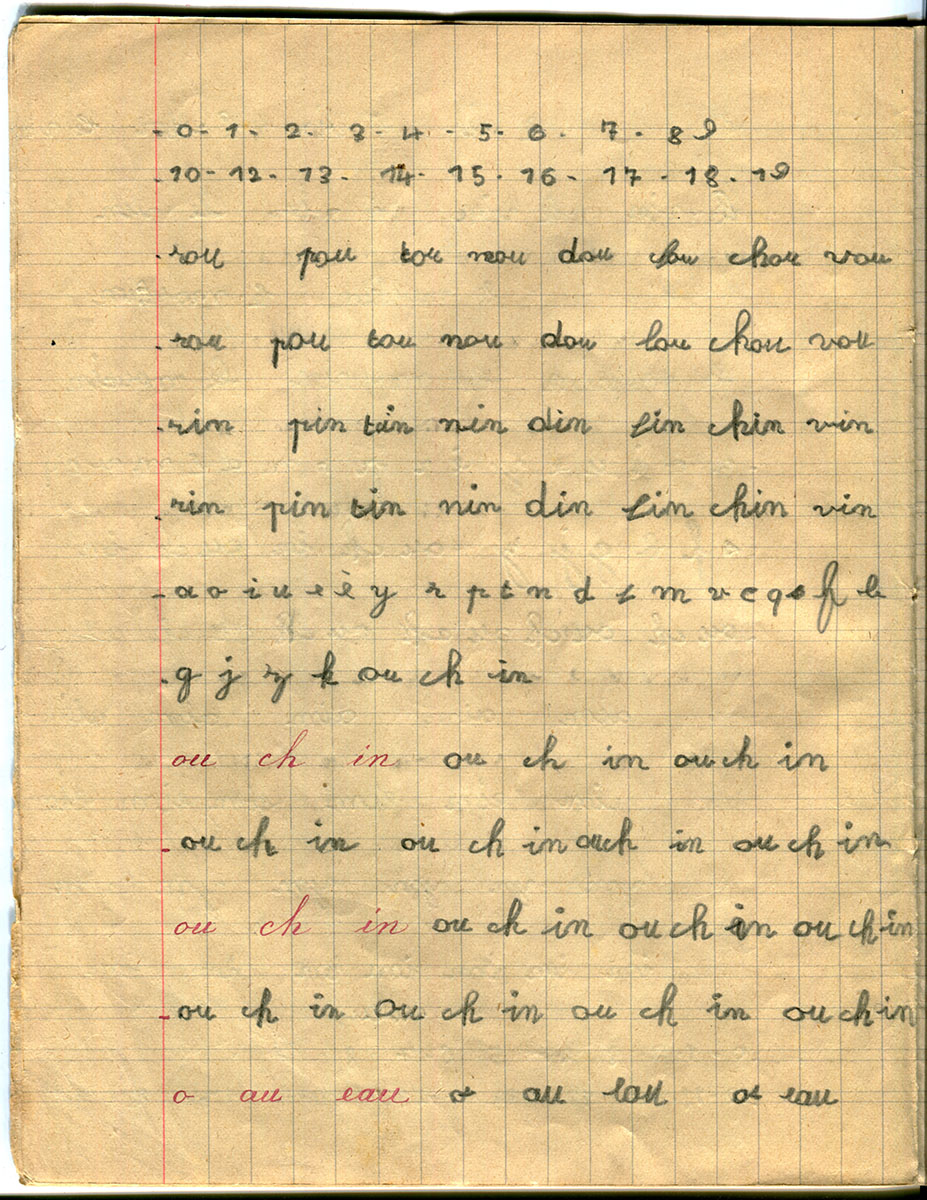 - 0 - 1 - 2 - 3 - 4 - 5 - 6 - 7 - 8 9
- 10 - 12 - 13 - 14 - 15 - 16 - 17 - 18 - 19
- rou pou tou nou dou chou vou
- rou pou tou nou dou lou chou vou
- rin pin tin nin din sin chin vin
- rin pin tin nin din sin chin vin
- a o i u e é y r p t n d s m v c q f b
- g j z k ou ch in
ou ch in ou ch in ou ch in
- ou ch in ou ch in ou ch in ou ch in
ou ch in ou ch in ou ch in ou ch in
- ou ch in ou ch in ou ch in ou ch in
o au eau o au eau eau